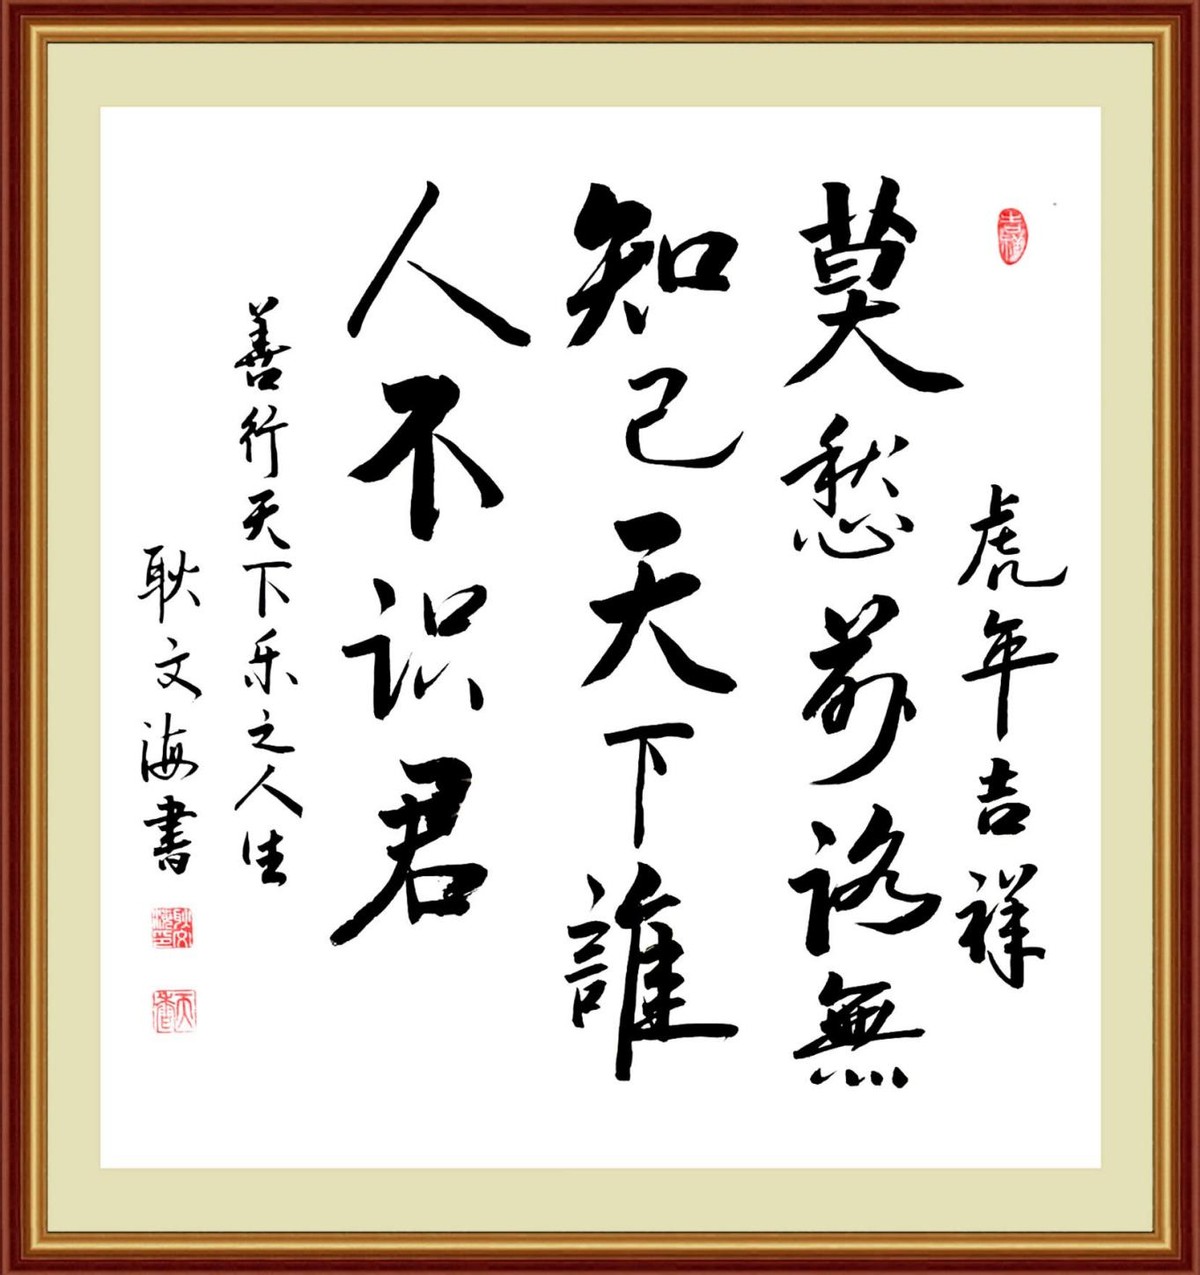 虎年吉祥
莫愁前路無
知己天下誰
人不识君
善行天下乐之人生
耿文海書